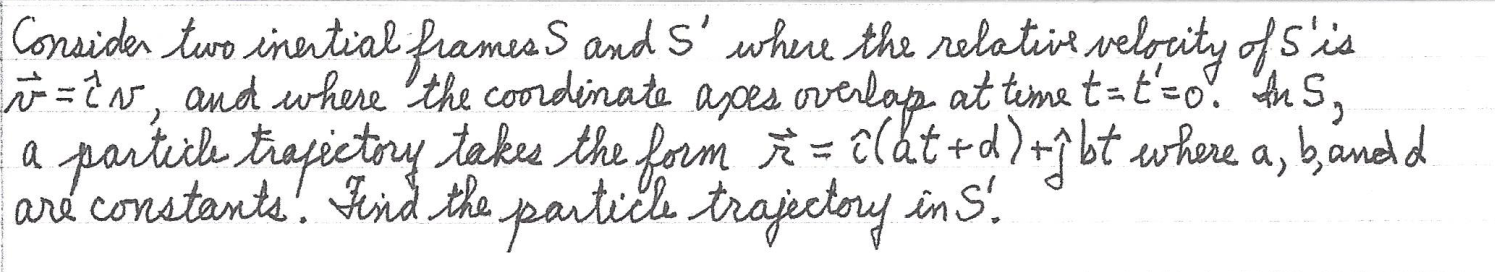 Consider two inertial frames S and S' where the relative velocity of S' is
v⃗ = îv, and where the coordinate axes overlap at time t=t'=0. In S,
a particle trajectory takes the form r⃗ = î(at+d)+ĵbt where a, b, and d
are constants. Find the particle trajectory in S'.